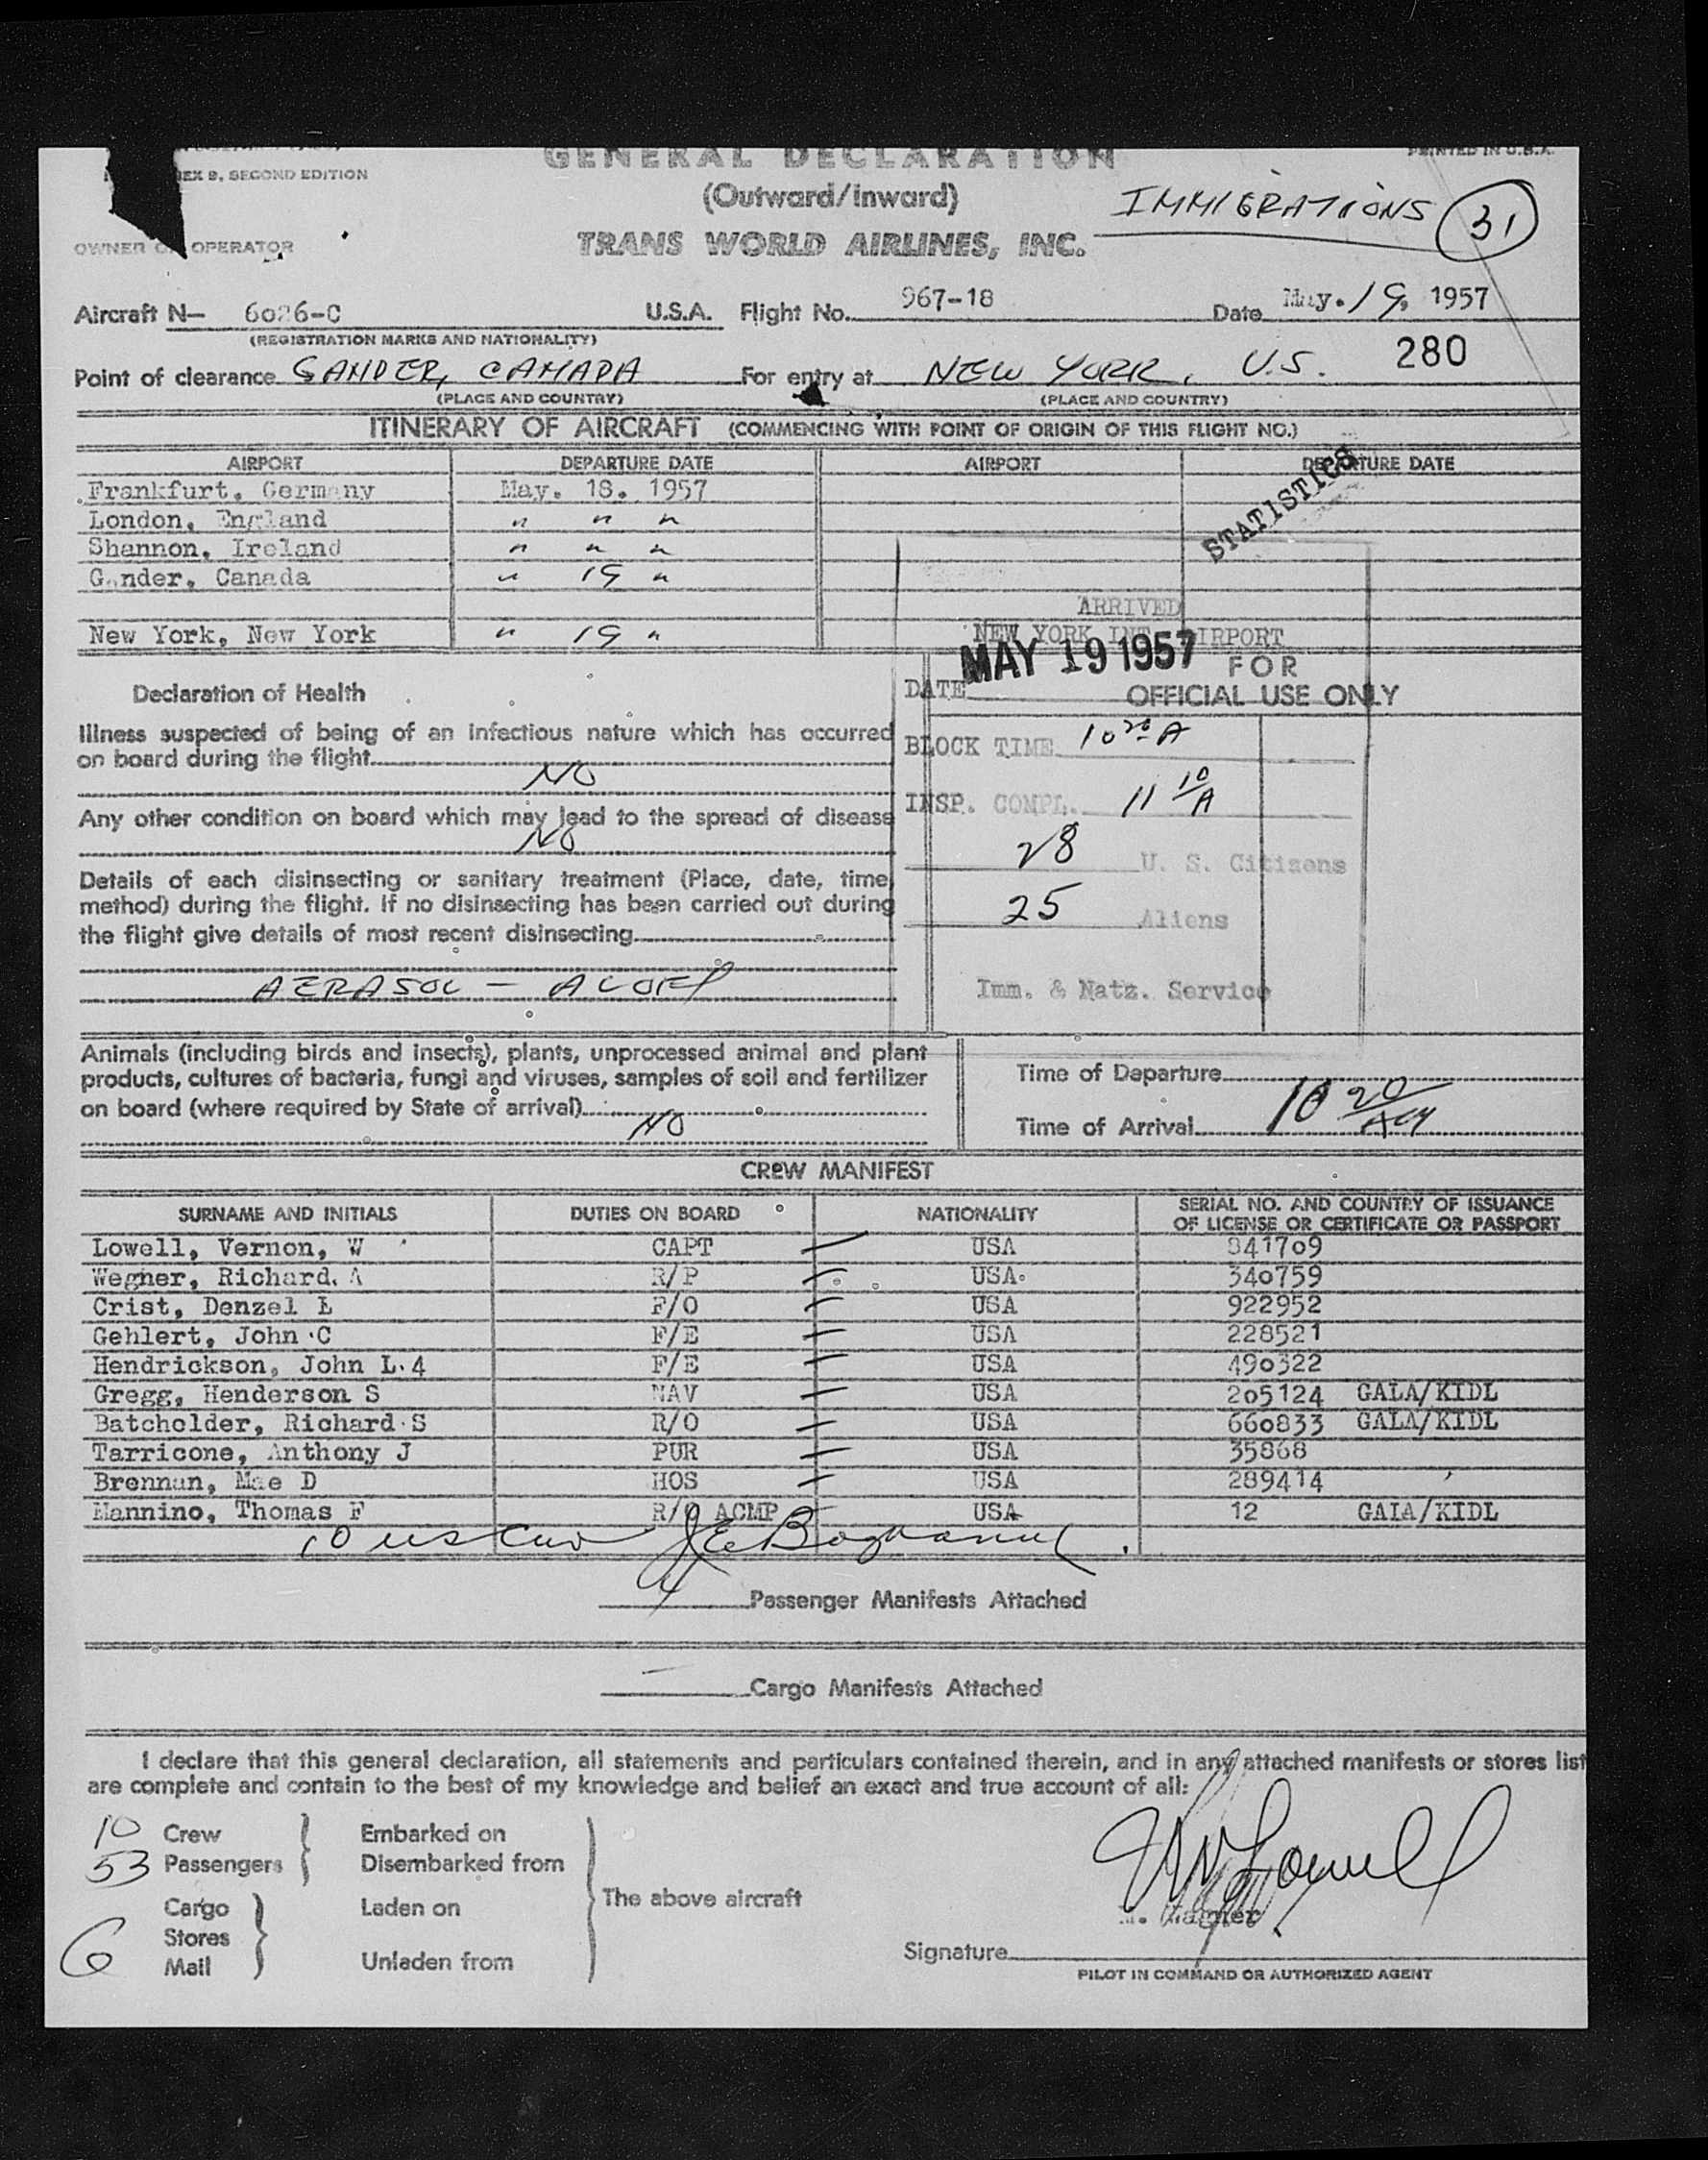 GENERAL DECLARATION
PRINTED IN U.S.A.
EX 9, SECOND EDITION
(Outward/Inward)
IMMIGRATIONS 31
OWNER OR OPERATOR
TRANS WORLD AIRLINES, INC.
Aircraft N— 6026-C U.S.A. Flight No. 967-18 Date May. 19, 1957
(REGISTRATION MARKS AND NATIONALITY)
280
Point of clearance GANDER, CANADA For entry at NEW YORK, U.S.
(PLACE AND COUNTRY) (PLACE AND COUNTRY)
ITINERARY OF AIRCRAFT (COMMENCING WITH POINT OF ORIGIN OF THIS FLIGHT NO.)
AIRPORT DEPARTURE DATE AIRPORT DEPARTURE DATE
STATISTICS
Frankfurt, Germany May. 18. 1957
London, England " " "
Shannon, Ireland " " "
Gander, Canada " 19 "
New York, New York " 19 "
ARRIVED
NEW YORK INT. AIRPORT
DATE MAY 19 1957
FOR
OFFICIAL USE ONLY
Declaration of Health
Illness suspected of being of an infectious nature which has occurred
on board during the flight
NO
BLOCK TIME 10 20 A
Any other condition on board which may lead to the spread of disease
NO
INSP. COMPL. 11 10 A
28 U. S. Citizens
Details of each disinsecting or sanitary treatment (Place, date, time,
method) during the flight. If no disinsecting has been carried out during
the flight give details of most recent disinsecting
25 Aliens
AERASOL —
Imm. & Natz. Service
Animals (including birds and insects), plants, unprocessed animal and plant
products, cultures of bacteria, fungi and viruses, samples of soil and fertilizer
on board (where required by State of arrival)
NO
Time of Departure
Time of Arrival 10 20
CREW MANIFEST
SURNAME AND INITIALS DUTIES ON BOARD NATIONALITY SERIAL NO. AND COUNTRY OF ISSUANCE
OF LICENSE OR CERTIFICATE OR PASSPORT
Lowell, Vernon, W CAPT USA 341709
Wegner, Richard. A R/P USA 340759
Crist, Denzel L F/O USA 922952
Gehlert, John C F/E USA 228521
Hendrickson, John L. 4 F/E USA 490322
Gregg, Henderson S NAV USA 205124 GALA/KIDL
Batcholder, Richard S R/O USA 660833 GALA/KIDL
Tarricone, Anthony J PUR USA 35868
Brennan, Mae D HOS USA 289414
Mannino, Thomas F R/O ACMP USA 12 GALA/KIDL
10
4 Passenger Manifests Attached
— Cargo Manifests Attached
I declare that this general declaration, all statements and particulars contained therein, and in any attached manifests or stores list
are complete and contain to the best of my knowledge and belief an exact and true account of all:
10 Crew Embarked on
53 Passengers Disembarked from
Cargo Laden on
The above aircraft
Stores
6 Mail Unladen from
Signature
PILOT IN COMMAND OR AUTHORIZED AGENT